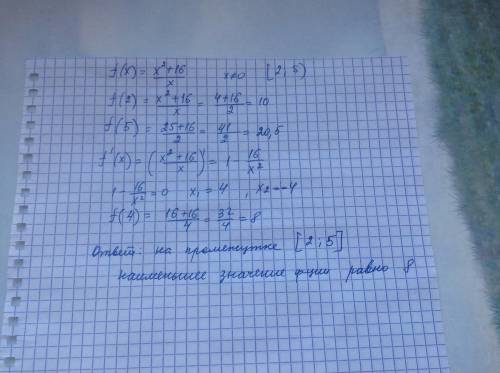 f(x) = x²+16/x   x≠0   [2;5)
f(2) = x²+16/x = 4+16/2 = 10
f(5) = 25+16/2 = 41/2 = 20,5
f'(x) = (x²+16/x)' = 1 - 16/x²
1 - 16/x² = 0   x₁ = 4 , x₂ = -4
f(4) = 16+16/4 = 32/4 = 8
Ответ: на промежутке [2;5]
наименьшее значение фции равно 8